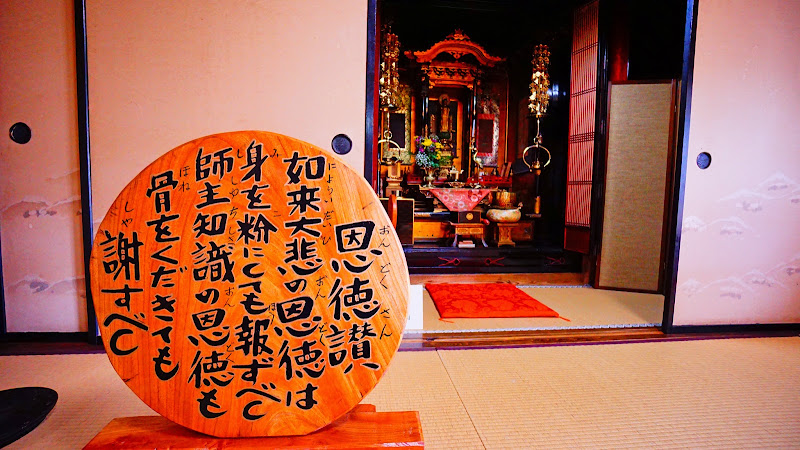 恩徳讃
如来大悲の恩徳は
身を粉にても報ずべし
師主知識の恩徳も
骨をくだきても
謝すべし